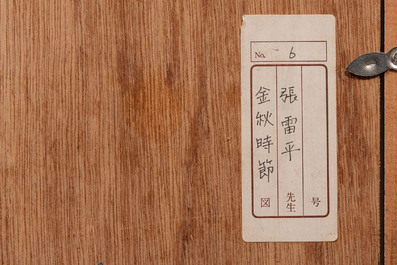 No. 6
号
張雷平先生
金秋時節図